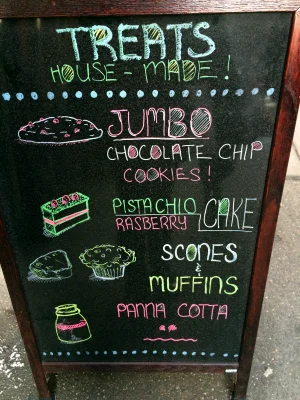 TREATS
HOUSE-MADE!
JUMBO
CHOCOLATE CHIP
COOKIES!
PISTACHIO
RASBERRY CAKE
SCONES
&
MUFFINS
PANNA COTTA